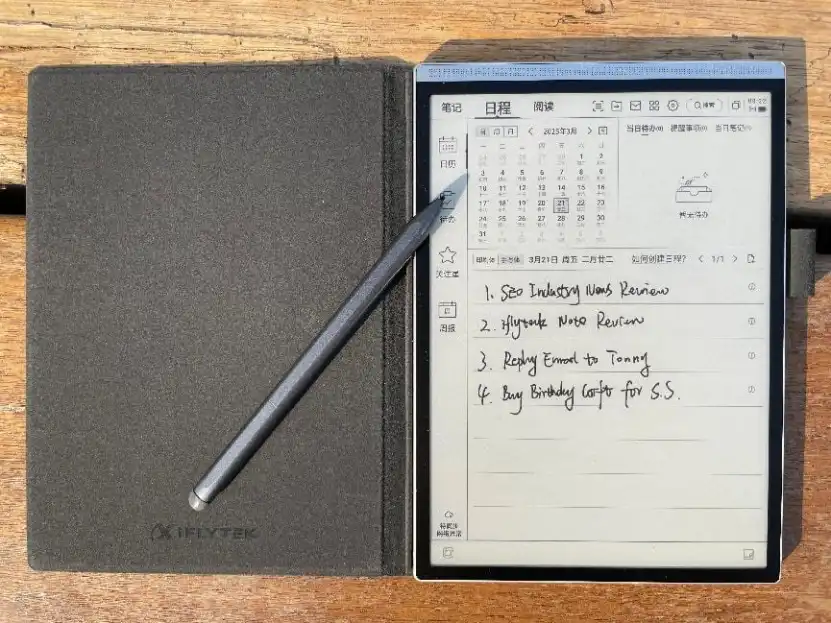 iFLYTEK
笔记 日程 阅读 搜索
日历
待办
日 周 月 2025年3月
一 二 三 四 五 六 日
24 25 26 27 28 1 2
3 4 5 6 7 8 9
10 11 12 13 14 15 16
17 18 19 20 21 22 23
24 25 26 27 28 29 30
31 1 2 3 4 5 6
当日待办(0) 提醒事项(0) 当日笔记(0)
暂无待办
关注筆
周报
手写体 3月21日 周五 二月廿二 如何创建日程? 1/1
1. SEO Industry News Review
2. iflyteck Note Review
3. Reply Email to Tonny
4. Buy Birthday Gift for S.S.